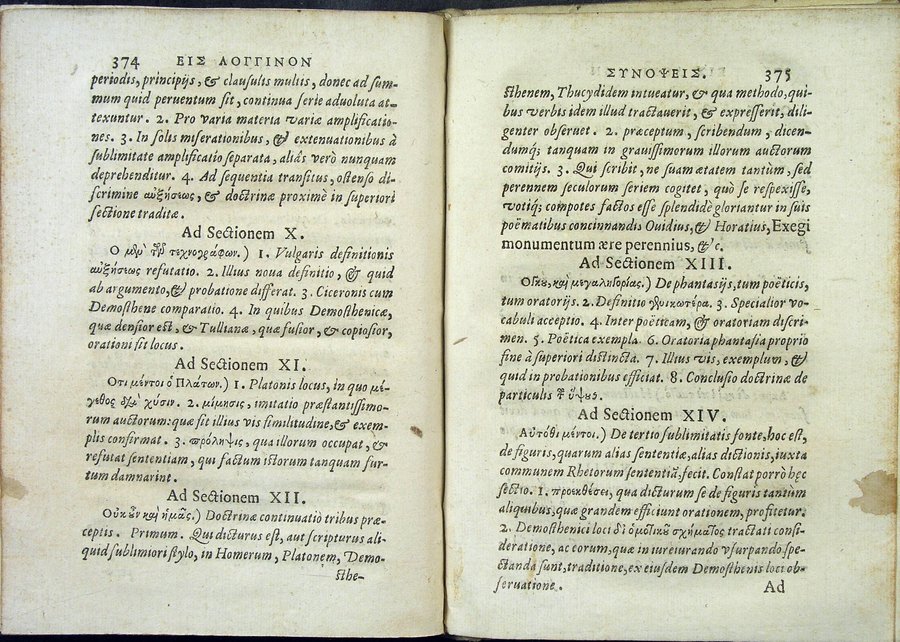 374 ΕΙΣ ΛΟΓΓΙΝΟΝ
periodis, principijs, & clausulis multis, donec ad sum-
mum quid peruentum sit, continua serie aduoluta at-
texuntur. 2. Pro varia materia variæ amplificatio-
nes. 3. In solis miserationibus, & extenuationibus à
sublimitate amplificatio separata, aliàs verò nunquam
deprehenditur. 4. Ad sequentia transitus, ostenso di-
scrimine αὐξήσεως, & doctrinæ proximè in superiori
sectione traditæ.
Ad Sectionem X.
Ο μὲν τῶν τεχνογράφων.) 1. Vulgaris definitionis
αὐξήσεως refutatio. 2. Illius noua definitio, & quid
ab argumento, & probatione differat. 3. Ciceronis cum
Demosthene comparatio. 4. In quibus Demosthenicæ,
quæ densior est, & Tullianæ, quæ fusior, & copiosior,
orationi sit locus.
Ad Sectionem XI.
Οτι μέντοι ὁ Πλάτων.) 1. Platonis locus, in quo μέ-
γεθος χύσιν. 2. μίμησις, imitatio præstantissimo-
rum auctorum: quæ sit illius vis similitudine, & exem-
plis confirmat. 3. πρόληψις, qua illorum occupat, &
refutat sententiam, qui factum istorum tanquam fur-
tum damnarint.
Ad Sectionem XII.
Οὐκοῦν καὶ ἡμᾶς.) Doctrinæ continuatiò tribus præ-
ceptis. Primum. Qui dicturus est, aut scripturus ali-
quid sublimiori stylo, in Homerum, Platonem, Demo-
sthe-
ΣΥΝΟΨΕΙΣ. 375
sthenem, Thucydidem intueatur, & qua methodo, qui-
bus verbis idem illud tractauerit, & expresserit, dili-
genter obseruet. 2. præceptum, scribendum, dicen-
dumq; tanquam in grauissimorum illorum auctorum
comitijs. 3. Qui scribit, ne suam ætatem tantùm, sed
perennem seculorum seriem cogitet, quò se respexisse,
votiq; compotes factos esse splendidè gloriantur in suis
poëmatibus concinnandis Ouidius, & Horatius, Exegi
monumentum ære perennius, &c.
Ad Sectionem XIII.
καὶ μεγαληγορίας.) De phantasijs, tum poëticis,
tum oratorijs. 2. Definitio 3. Specialior vo-
cabuli acceptio. 4. Inter poëticam, & oratoriam discri-
men. 5. Poëtica exempla. 6. Oratoria phantasia proprio
fine à superiori distincta. 7. Illius vis, exemplum, &
quid in probationibus efficiat. 8. Conclusio doctrinæ de
particulis τοῦ ὕψους.
Ad Sectionem XIV.
Αὐτόθι μέντοι.) De tertio sublimitatis fonte, hoc est,
de figuris, quarum alias sententiæ, alias dictionis, iuxta
communem Rhetorum sententiã, fecit. Constat porrò hęc
sectio. 1. προεκθέσει, qua dicturum se de figuris tantùm
aliquibus, quæ grandem efficiunt orationem, profitetur.
2. Demosthenici loci δι᾽ ὀμοτικοῦ σχήματος tractati consi-
deratione, ac eorum, quæ in iureiurando vsurpando spe-
ctanda sunt, traditione, ex eiusdem Demosthenis loci ob-
seruatione. Ad